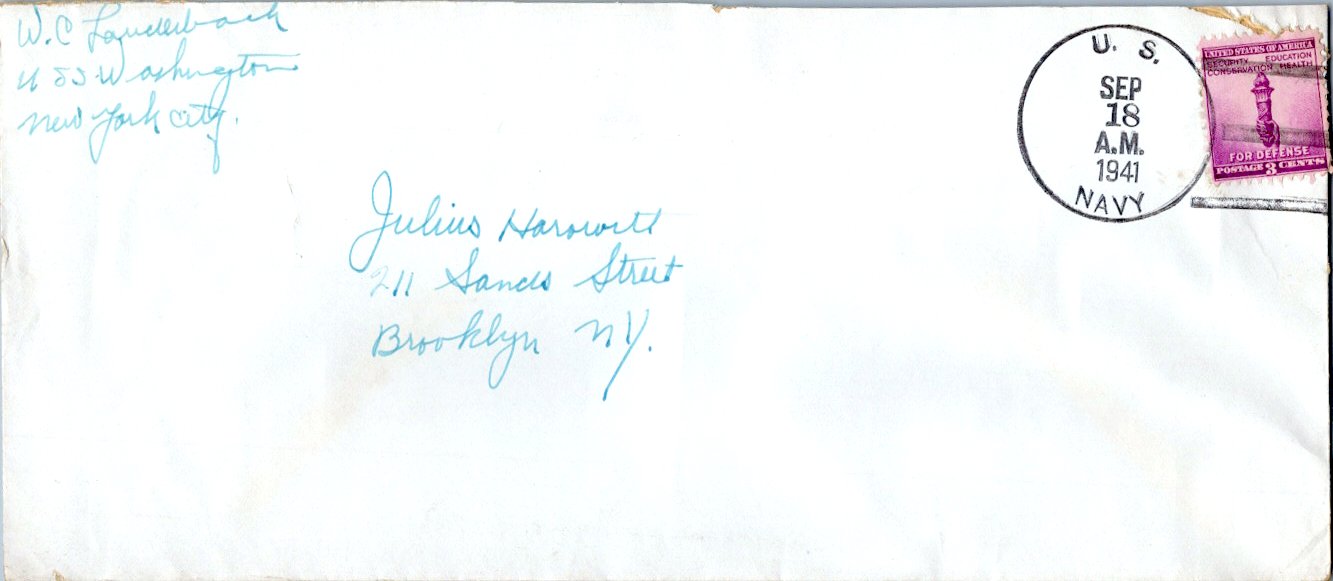 W. C Lauderback
U S S Washington
New York City.
U. S.
SEP
18
A.M.
1941
NAVY
UNITED STATES OF AMERICA
SECURITY EDUCATION
CONSERVATION HEALTH
FOR DEFENSE
POSTAGE 3 CENTS
Julius Harowitt
211 Sands Street
Brooklyn NY.